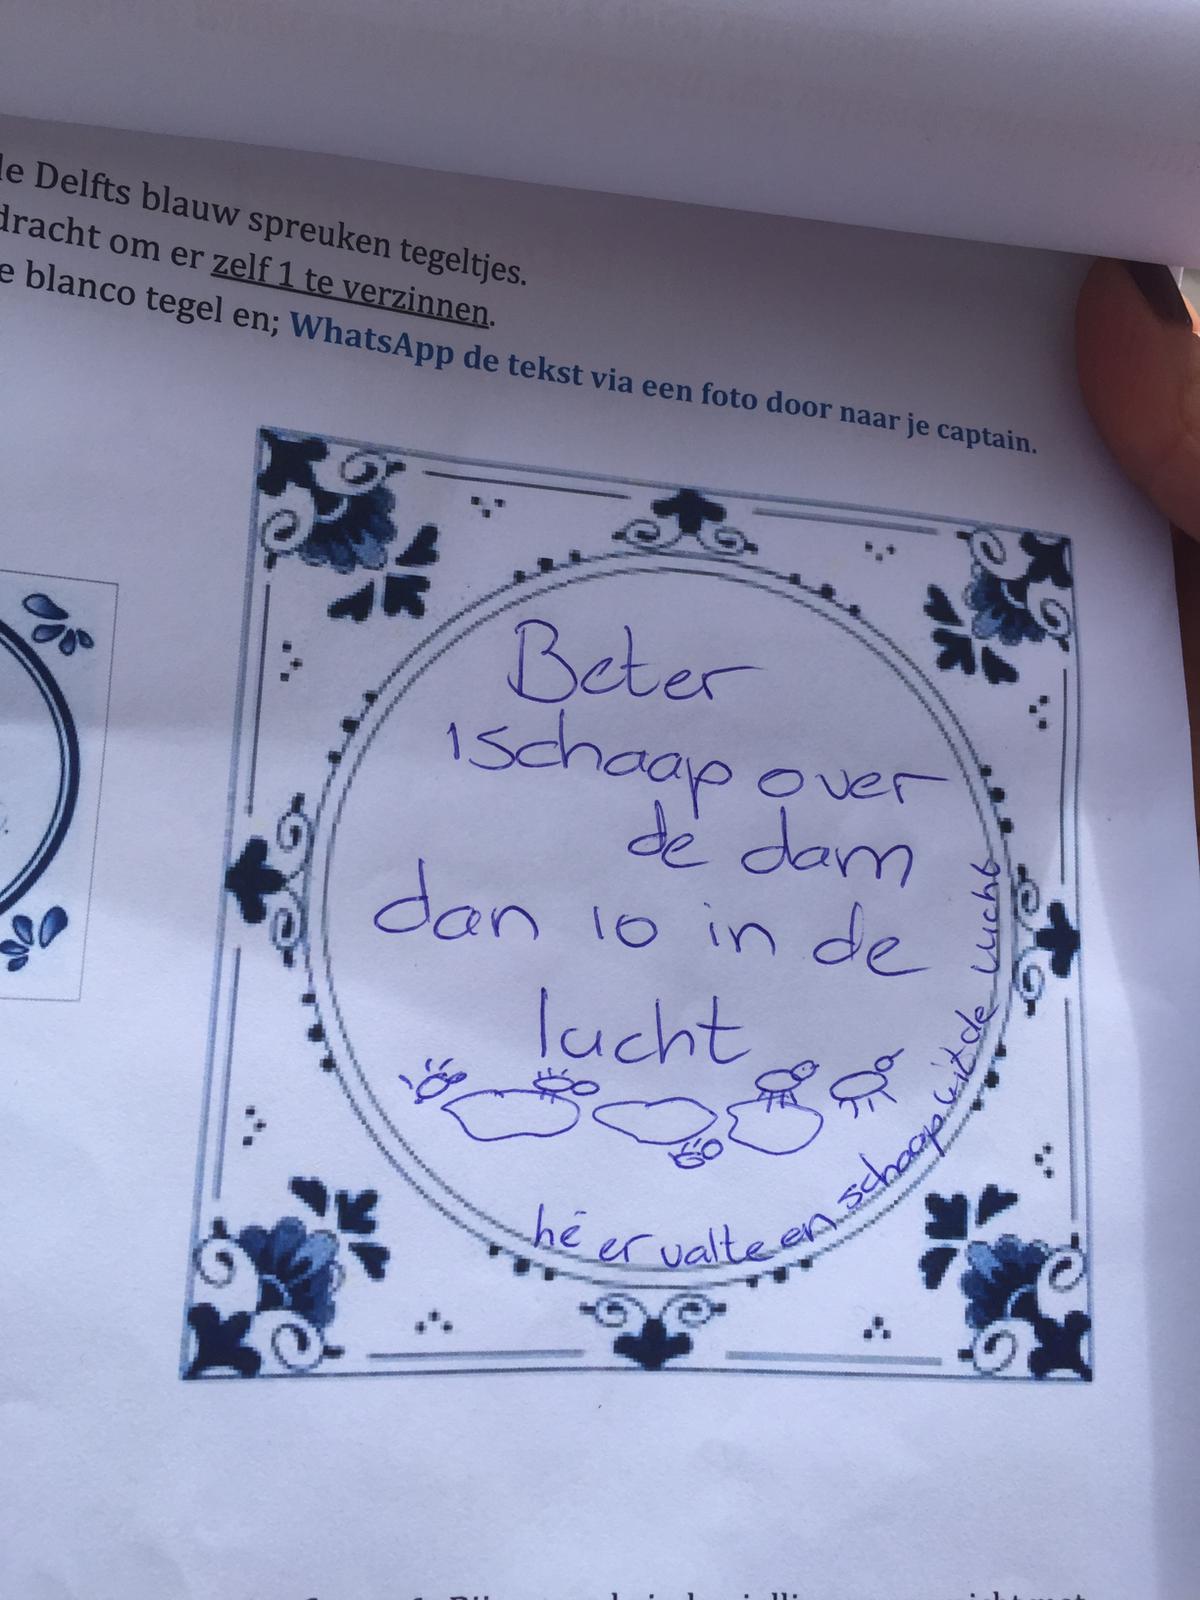 le Delfts blauw spreuken tegeltjes.
dracht om er zelf 1 te verzinnen.
e blanco tegel en; WhatsApp de tekst via een foto door naar je captain.
Beter
1 schaap over
de dam
dan 10 in de
lucht
hé er valt een schaap uit de lucht